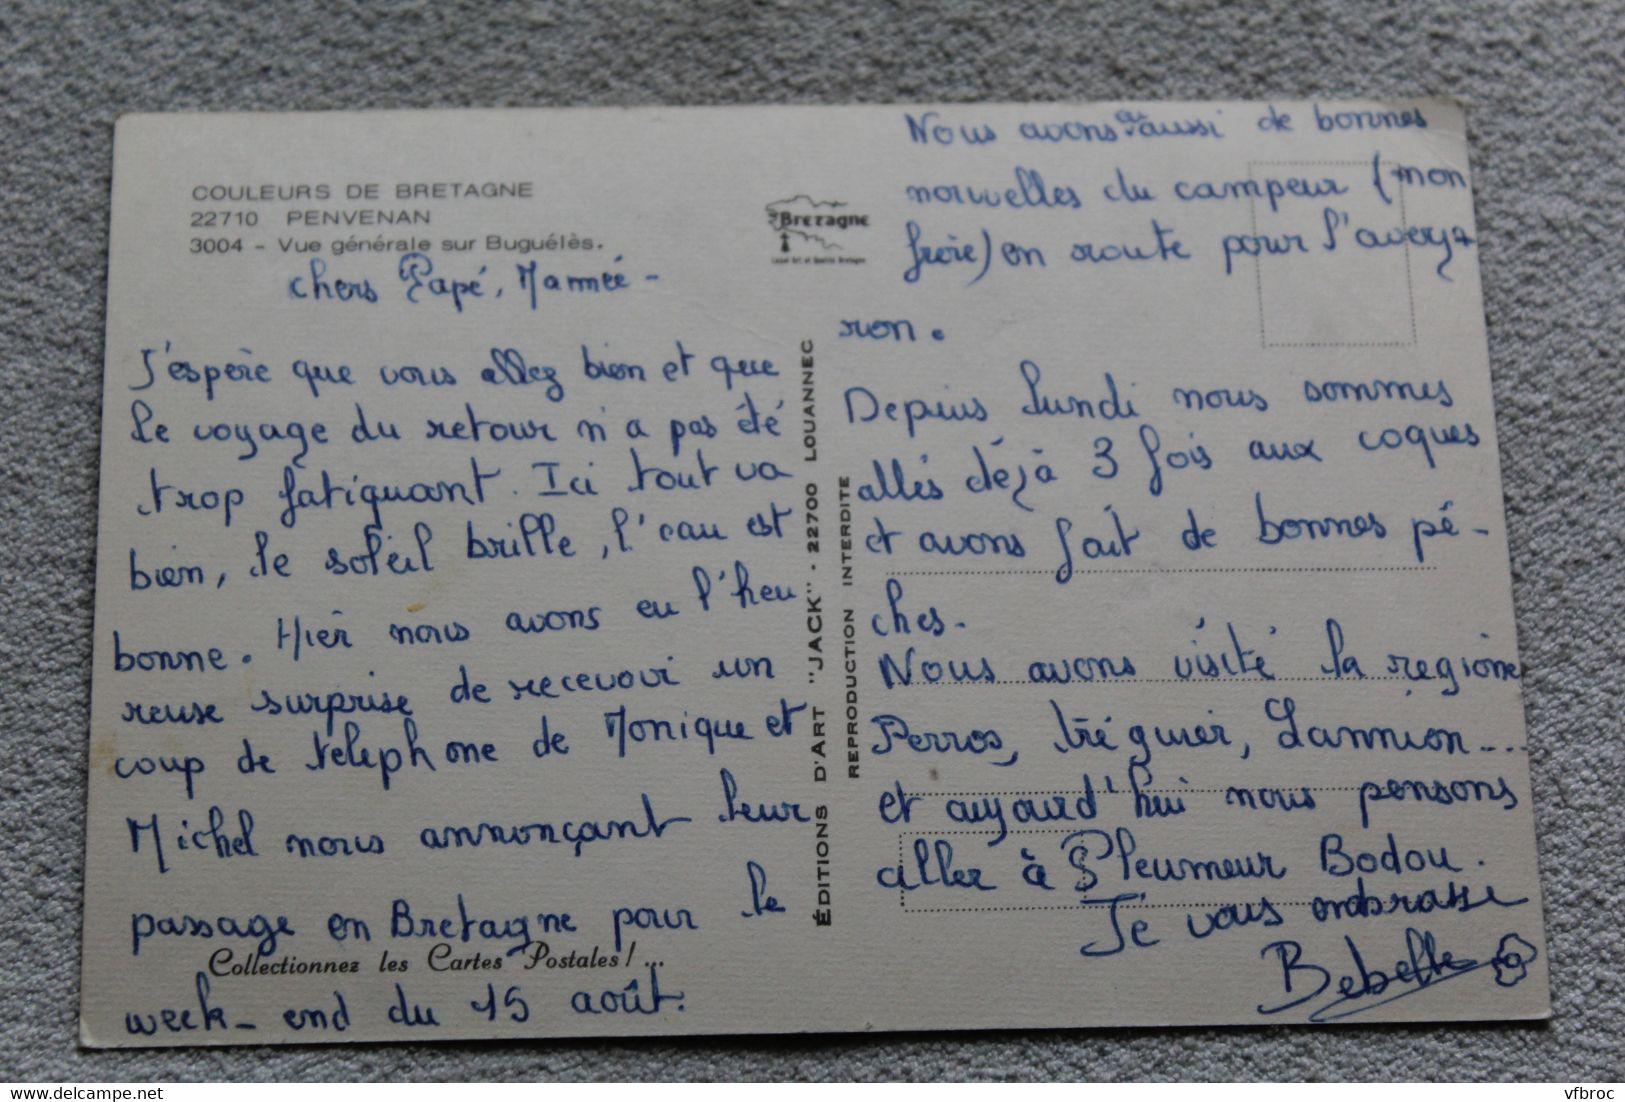 COULEURS DE BRETAGNE
22710 PENVENAN
3004 - Vue générale sur Buguélès.
Chers Papé, Mamée -
J'espère que vous allez bien et que
le voyage du retour n'a pas été
trop fatiquant. Ici tout va
bien, le soleil brille, l'eau est
bonne. Hier nous avons eu l'heu
reuse surprise de recevoir un
coup de telephone de Monique et
Michel nous annonçant leur
passage en Bretagne pour le
Collectionnez les Cartes Postales ! ...
week-end du 15 août.
ÉDITIONS D'ART "JACK" - 22700 LOUANNEC
REPRODUCTION INTERDITE
Bretagne
Label Art et Qualité Bretagne
Nous avons aussi de bonnes
nouvelles du campeur (mon
frère) en route pour l'avey
ron.
Depuis lundi nous sommes
allés déjà 3 fois aux coques
et avons fait de bonnes pê-
ches.
Nous avons visité la région
Perros, Tréguier, Lannion....
et aujourd'hui nous pensons
aller à Pleumeur Bodou.
Je vous embrasse
Bebelle
vfbroc